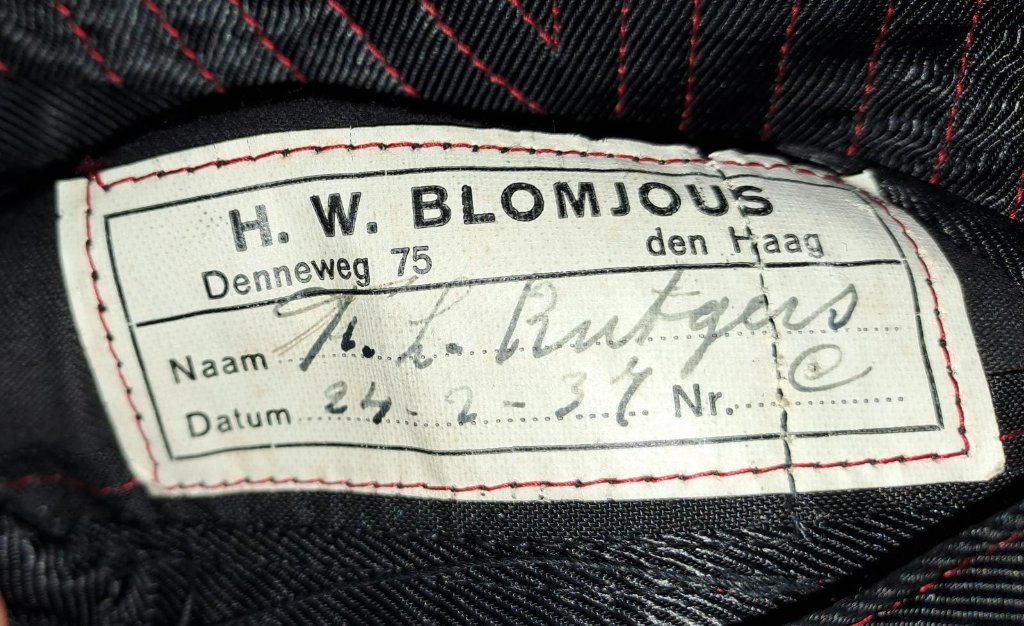 H. W. BLOMJOUS
Denneweg 75 den Haag
Naam L. Rutgers
Datum 24-2-37 Nr. C